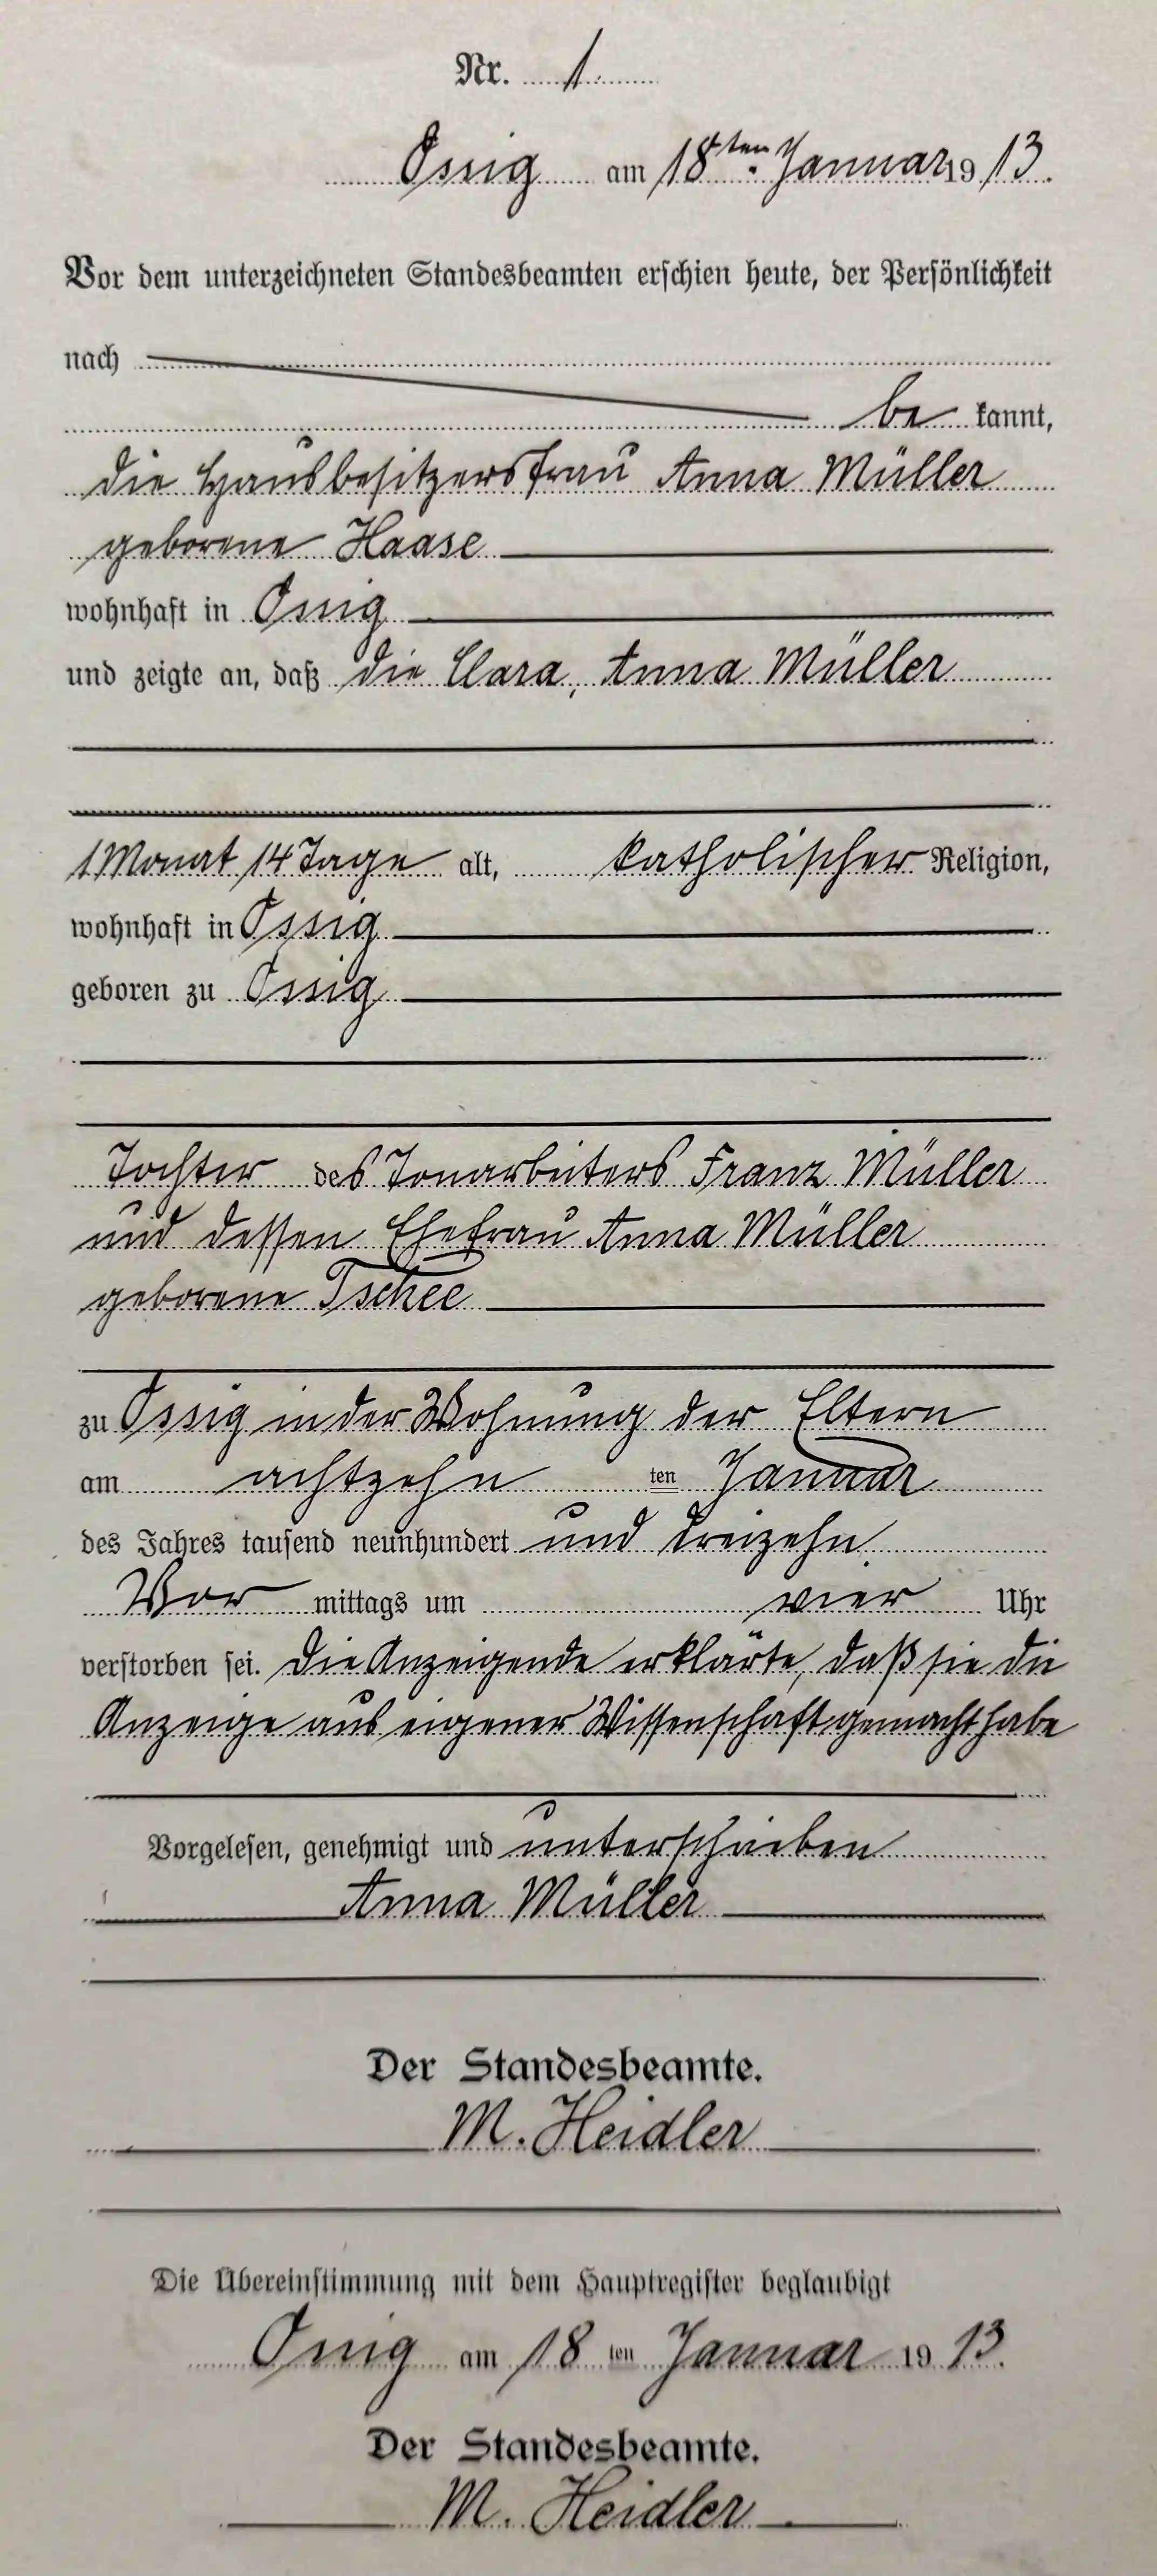 Nr. 1.
Ossig am 18ten Januar 1913.
Vor dem unterzeichneten Standesbeamten erschien heute, der Persönlichkeit
nach
be kannt,
die Hausbesitzersfrau Anna Müller
geborene Haase
wohnhaft in Ossig
und zeigte an, daß die Clara, Anna Müller
1 Monat 14 Tage alt, katholischer Religion,
wohnhaft in Ossig
geboren zu Ossig
Tochter des Tonarbeiters Franz Müller
und dessen Ehefrau Anna Müller
geborene Tschee
zu Ossig in der Wohnung der Eltern
am achtzehn ten Januar
des Jahres tausend neunhundert und dreizehn
Vor mittags um vier Uhr
verstorben sei. Die Anzeigende erklärte, daß sie die
Anzeige aus eigener Wissenschaft gemacht habe
Vorgelesen, genehmigt und unterschrieben
Anna Müller
Der Standesbeamte.
M. Heidler
Die Übereinstimmung mit dem Hauptregister beglaubigt
Ossig am 18 ten Januar 1913.
Der Standesbeamte.
M. Heidler